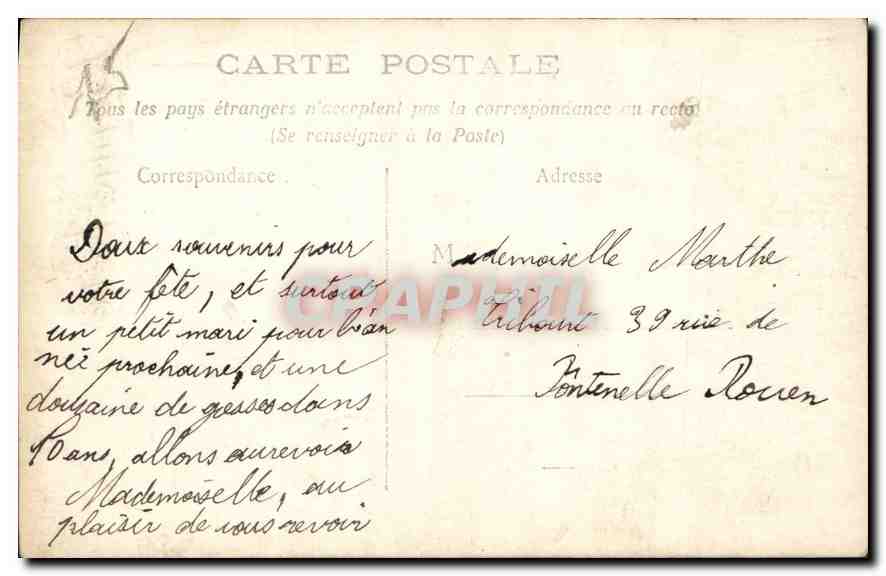 CARTE POSTALE
Tous les pays étrangers n'acceptent pas la correspondance au recto
(Se renseigner à la Poste)
Correspondance
Adresse
Doux souvenirs pour
votre fête, et surtout
un petit mari pour l'an
née prochaine, et une
douzaine de gosses dans
10 ans, allons aurevoir
Mademoiselle, au
plaisir de vous revoir
Mademoiselle Marthe
39 rue de
Fontenelle Rouen
CPAPHIL